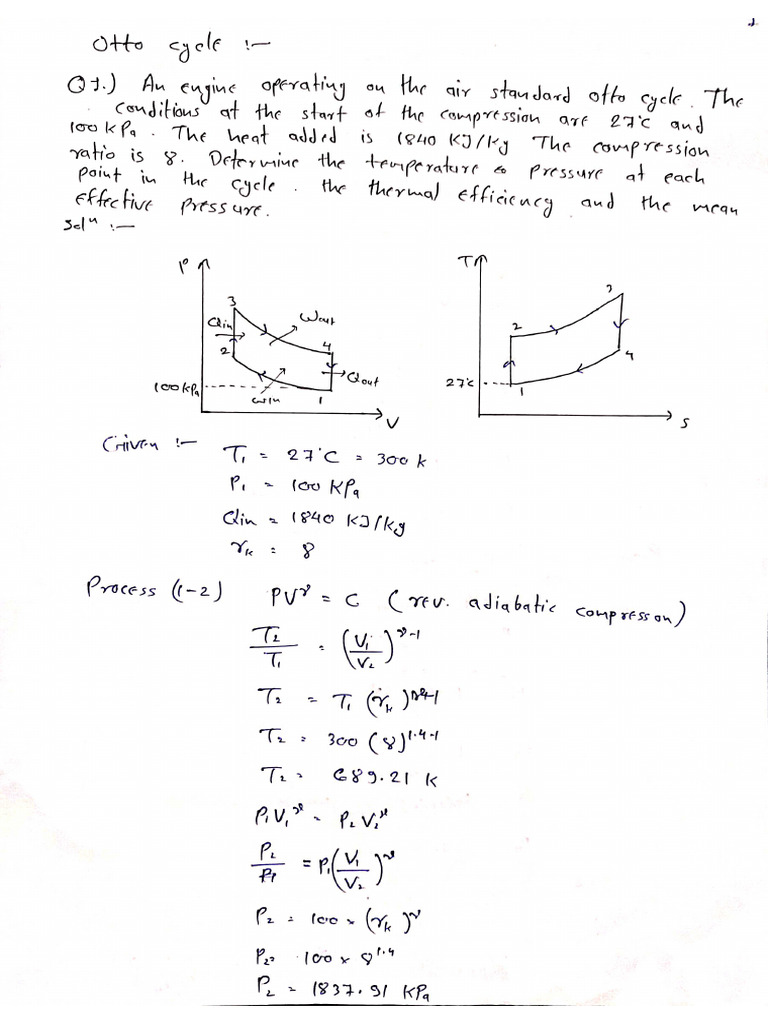 Otto cycle :-
Q1.) An engine operating on the air standard otto cycle. The
conditions at the start of the compression are 27°C and
100 kPa. The heat added is 1840 KJ/Kg The compression
ratio is 8. Determine the temperature & pressure at each
point in the cycle. the thermal efficiency and the mean
effective pressure.
Solⁿ :-
P
3
Qin
Wout
2
4
Qout
100kPa
Win
1
V
T
3
2
4
27°C
1
S
Given :-
T₁ = 27°C = 300 k
P₁ = 100 KPa
Qin = 1840 KJ/kg
rₖ = 8
Process (1-2) PVᵞ = C (rev. adiabatic compresson)
T₂/T₁ = (V₁/V₂)ᵞ⁻¹
T₂ = T₁ (rₖ)ᵞ⁻¹
T₂ = 300 (8)^1.4-1
T₂ = 689.21 K
P₁V₁ᵞ = P₂V₂ᵞ
P₂/P₁ = P₁(V₁/V₂)ᵞ
P₂ = 100 × (rₖ)ᵞ
P₂ = 100 × 8^1.4
P₂ = 1837.91 KPa